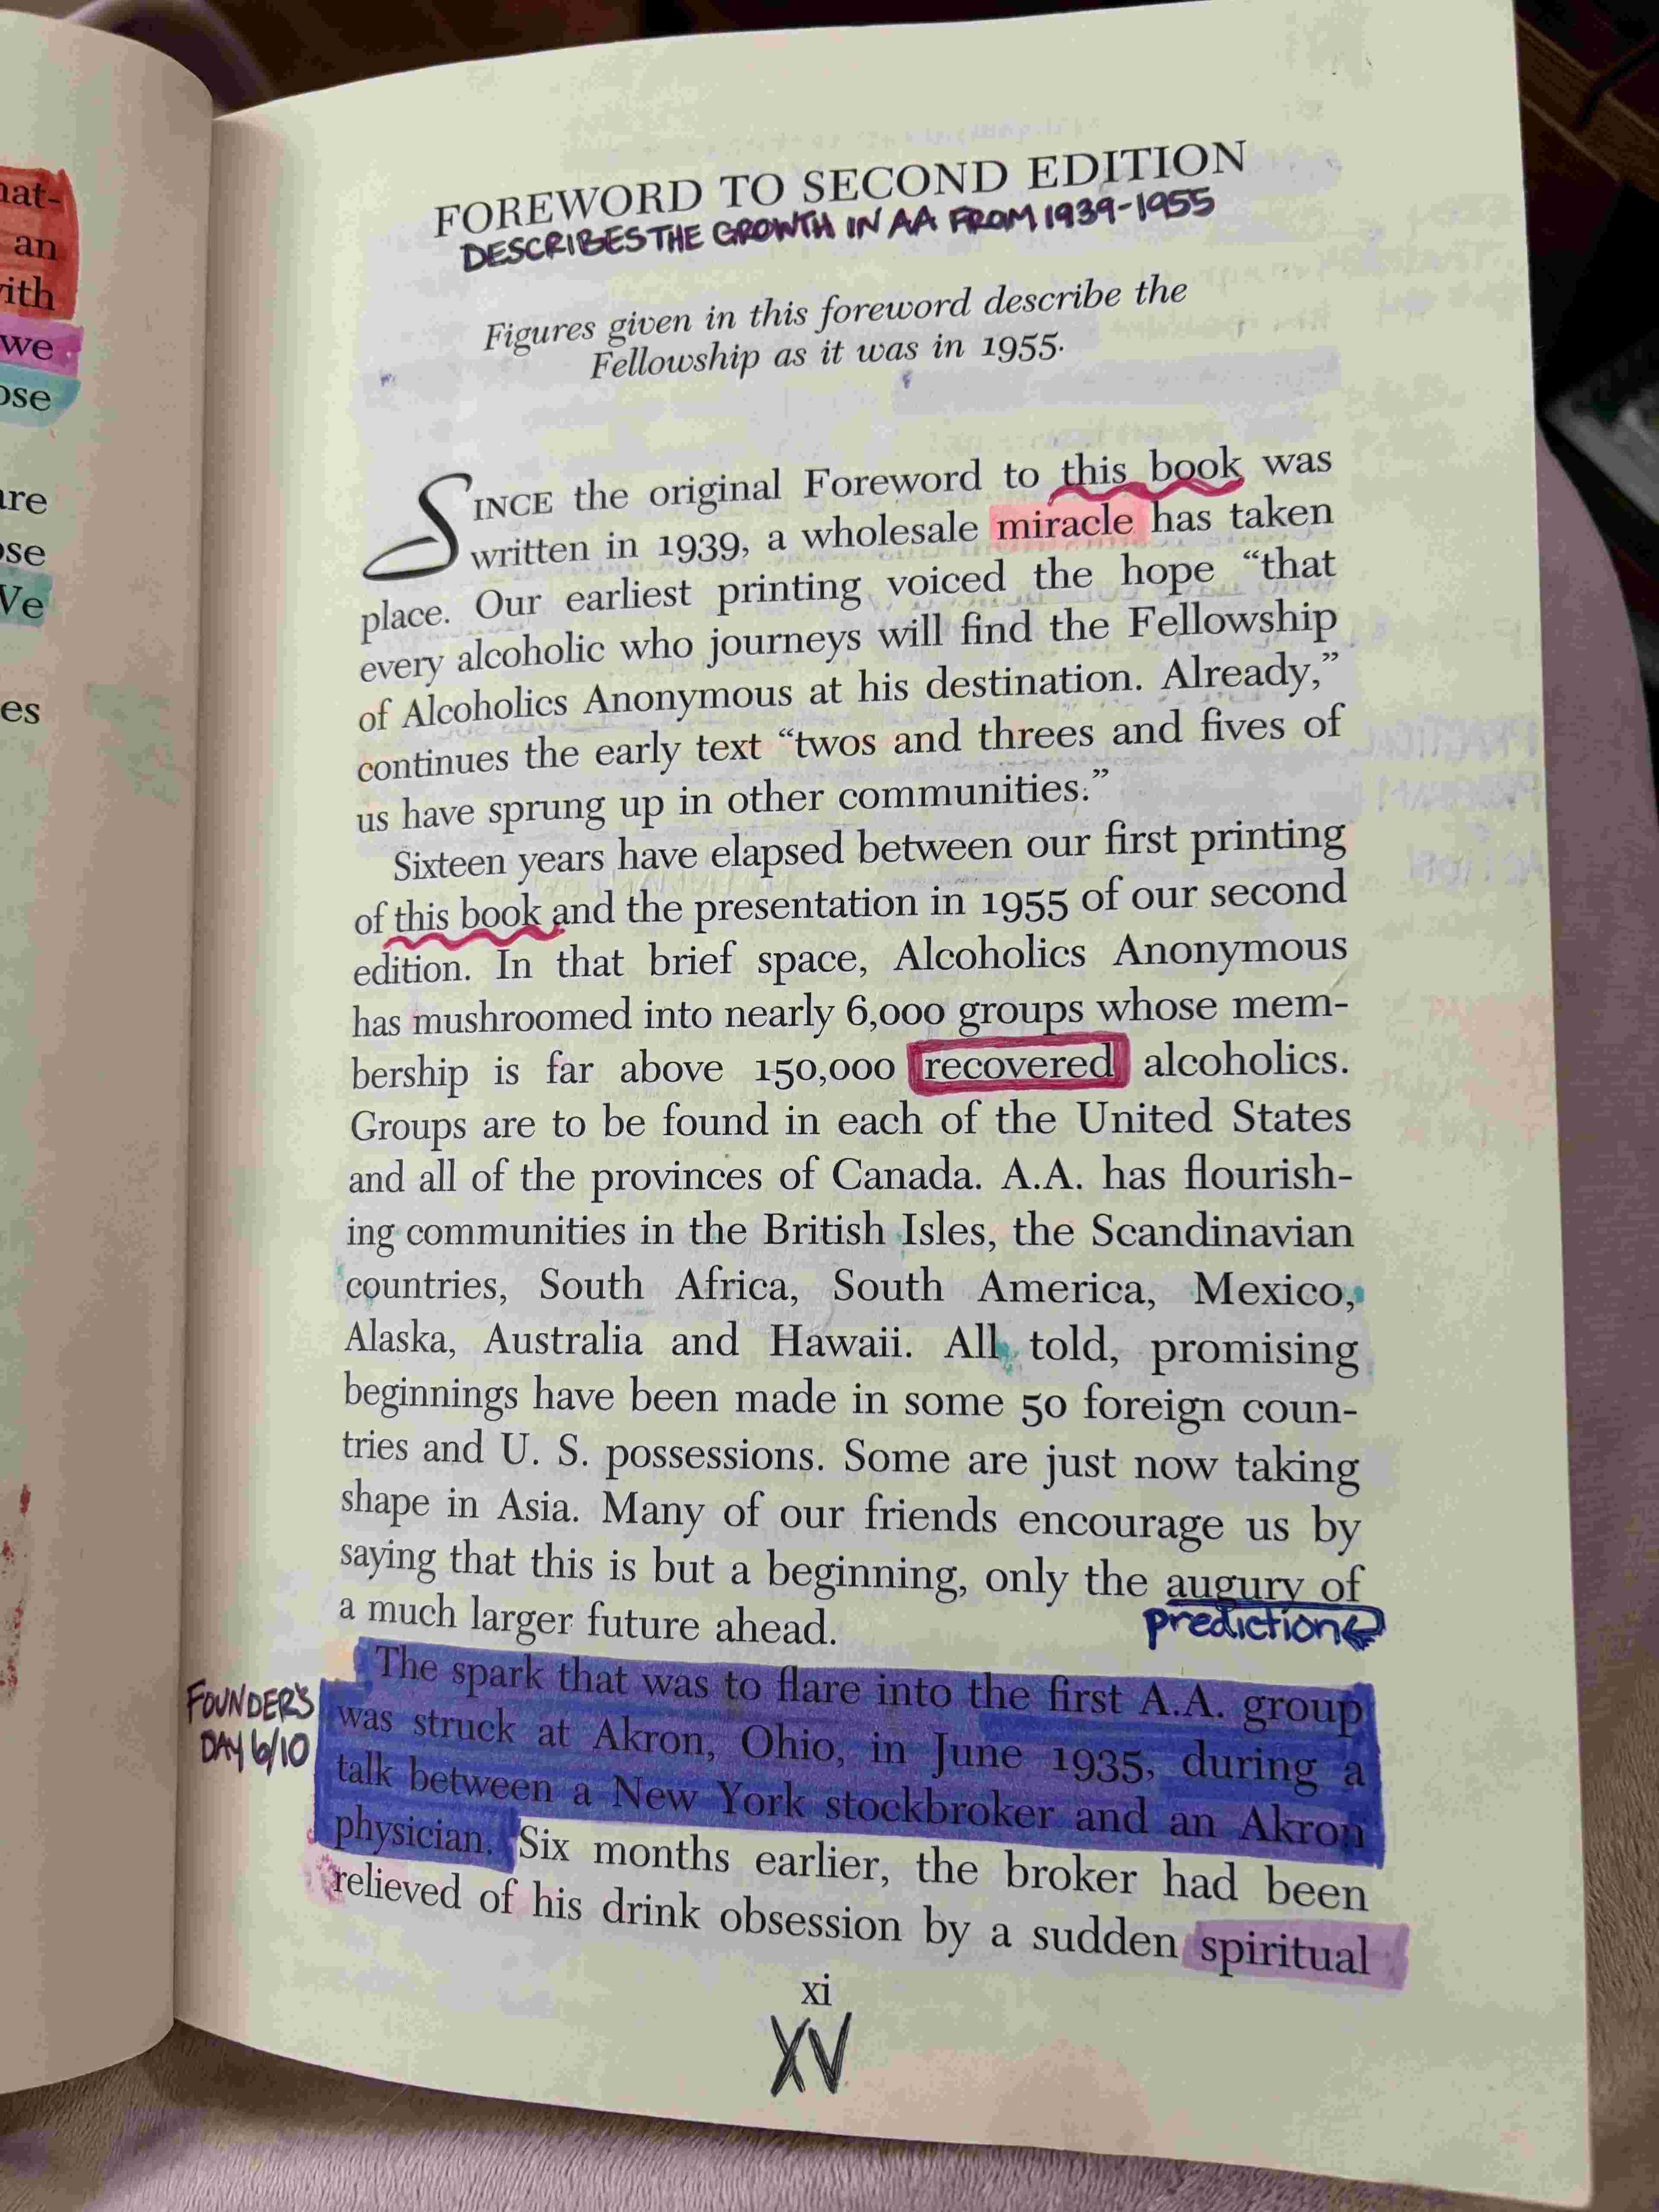 nat-
an
with
we
ose
are
ose
We
es
FOREWORD TO SECOND EDITION
DESCRIBES THE GROWTH IN AA FROM 1939-1955
Figures given in this foreword describe the
Fellowship as it was in 1955.
SINCE the original Foreword to this book was
written in 1939, a wholesale miracle has taken
place. Our earliest printing voiced the hope “that
every alcoholic who journeys will find the Fellowship
of Alcoholics Anonymous at his destination. Already,”
continues the early text “twos and threes and fives of
us have sprung up in other communities.”
Sixteen years have elapsed between our first printing
of this book and the presentation in 1955 of our second
edition. In that brief space, Alcoholics Anonymous
has mushroomed into nearly 6,000 groups whose mem-
bership is far above 150,000 recovered alcoholics.
Groups are to be found in each of the United States
and all of the provinces of Canada. A.A. has flourish-
ing communities in the British Isles, the Scandinavian
countries, South Africa, South America, Mexico,
Alaska, Australia and Hawaii. All told, promising
beginnings have been made in some 50 foreign coun-
tries and U. S. possessions. Some are just now taking
shape in Asia. Many of our friends encourage us by
saying that this is but a beginning, only the augury of
a much larger future ahead.
prediction
The spark that was to flare into the first A.A. group
was struck at Akron, Ohio, in June 1935, during a
talk between a New York stockbroker and an Akron
physician. Six months earlier, the broker had been
relieved of his drink obsession by a sudden spiritual
FOUNDER'S
DAY 6/10
xi
XV